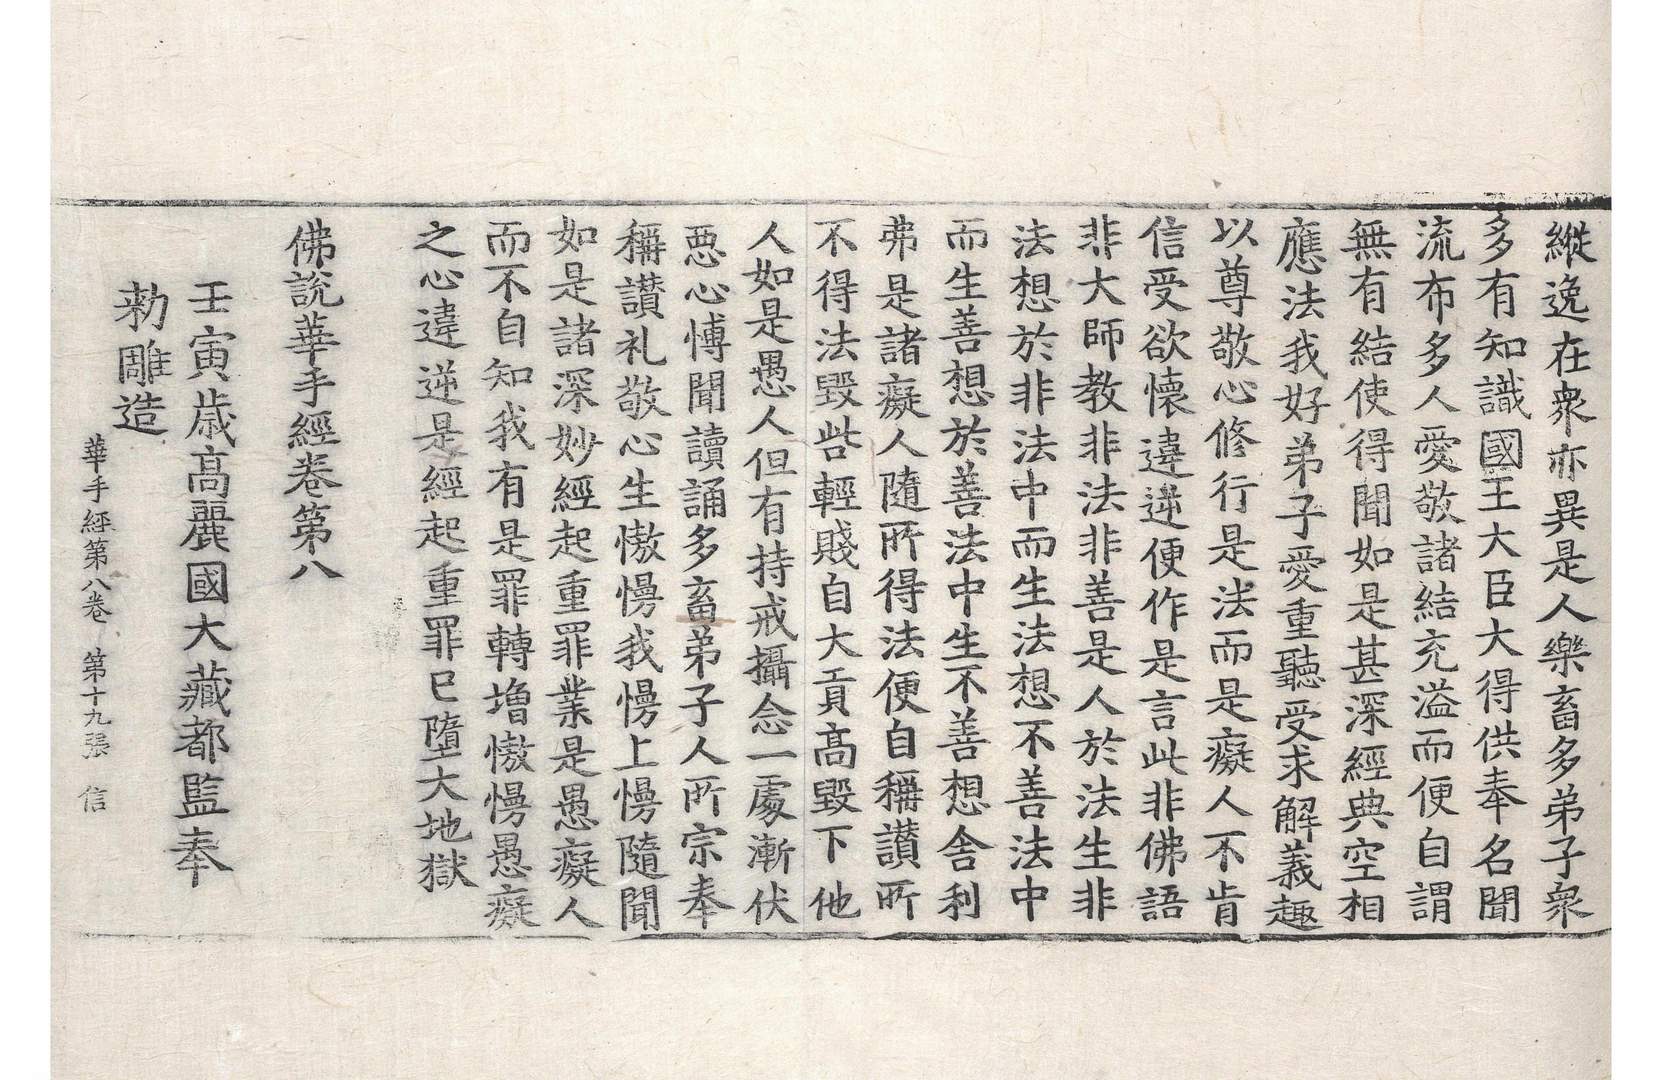 縱逸在衆亦異是人樂畜多弟子衆
多有知識國王大臣大得供奉名聞
流布多人愛敬諸結充溢而便自謂
無有結使得聞如是甚深經典空相
應法我好弟子愛重聽受求解義趣
以尊敬心修行是法而是癡人不肯
信受欲懷違逆便作是言此非佛語
非大師教非法非善是人於法生非
法想於非法中而生法想不善法中
而生善想於善法中生不善想舍利
弗是諸癡人隨所得法便自稱讃所
不得法毀呰輕賤自大貢高毀下他
人如是愚人但有持戒攝念一處漸伏
惡心愽聞讀誦多畜弟子人所宗奉
稱讃礼敬心生憿慢我慢上慢隨聞
如是諸深妙經起重罪業是愚癡人
而不自知我有是罪轉增憿慢愚癡
之心違逆是經起重罪已墮大地獄
佛說華手經卷第八
壬寅歳高麗國大藏都監奉
勑雕造
華手經第八卷 第十九張 信